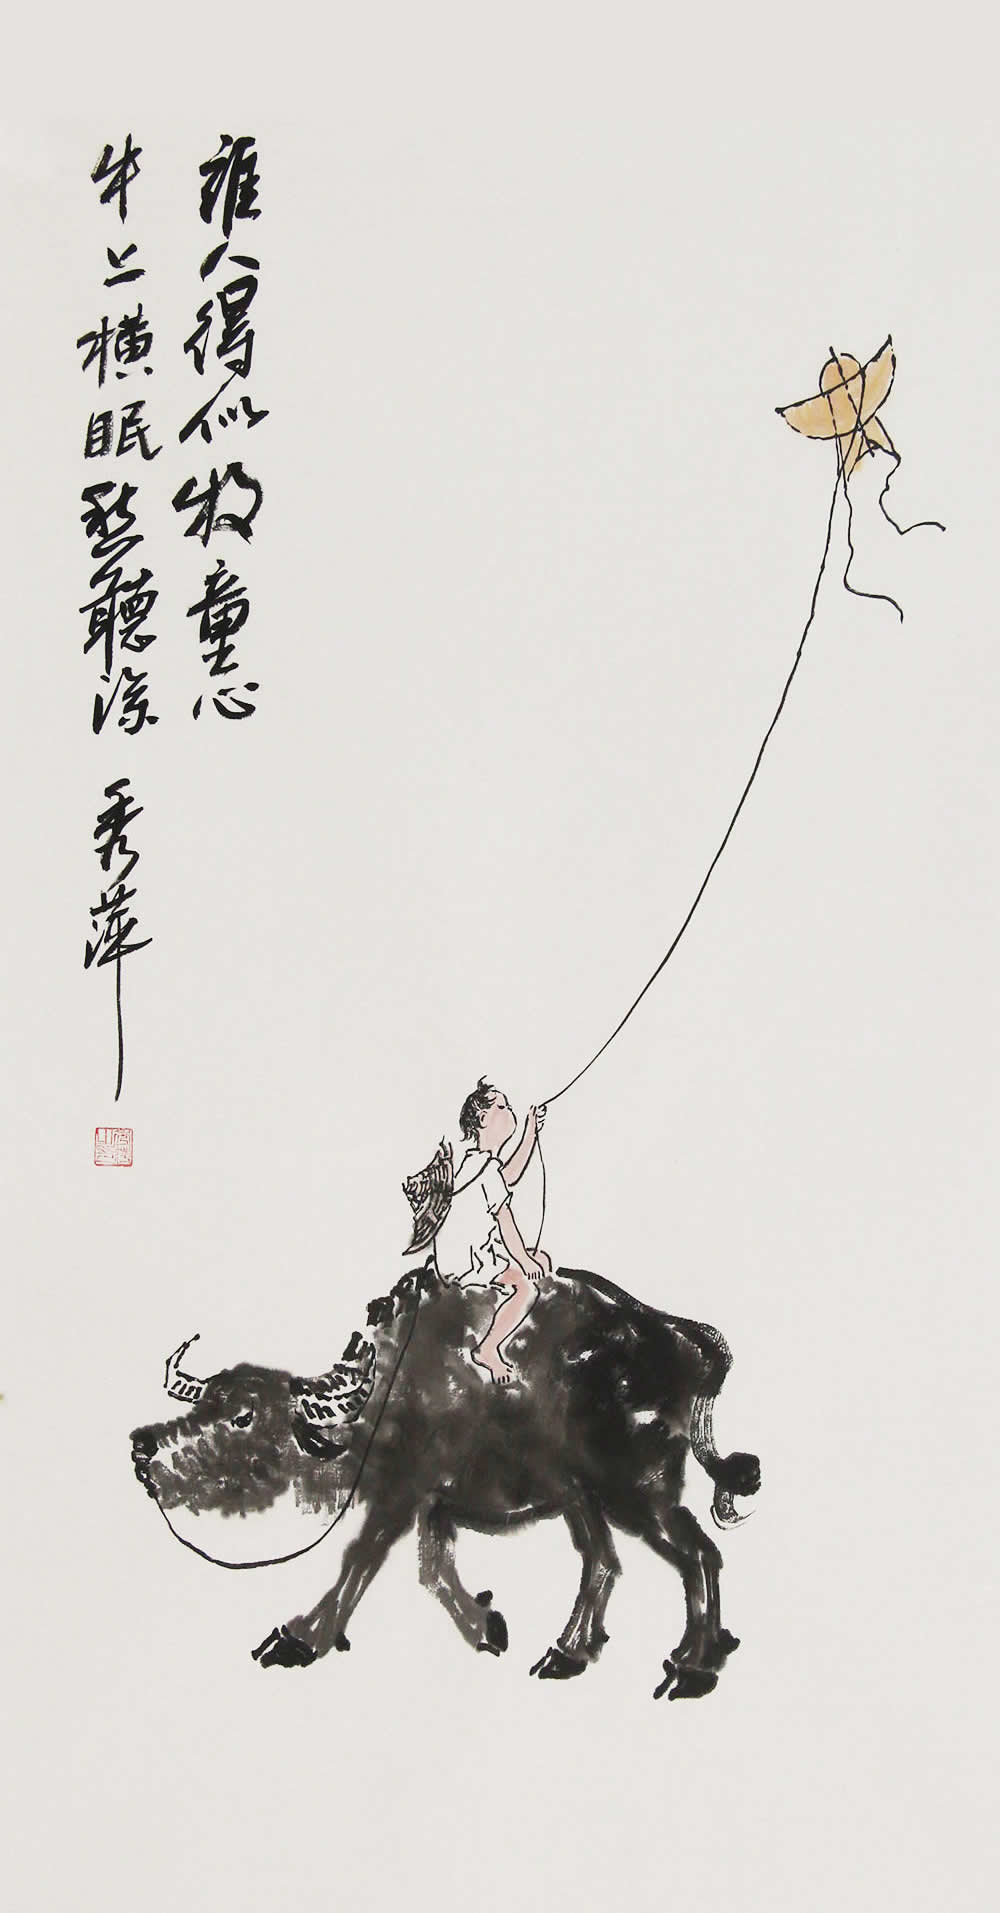 誰人得似牧童心
牛上横眠愁聽深
秀萍